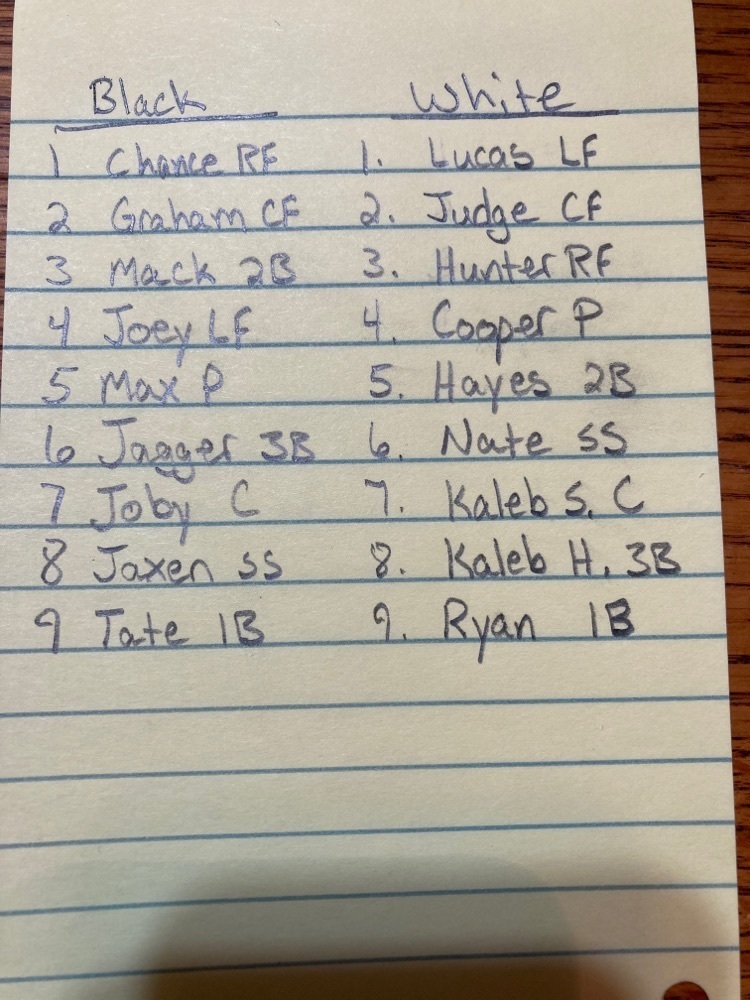 Black White
1 Chance RF 1. Lucas LF
2 Graham CF 2. Judge CF
3 Mack 2B 3. Hunter RF
4 Joey LF 4. Cooper P
5 Max P 5. Hayes 2B
6 Jagger 3B 6. Nate SS
7 Joby C 7. Kaleb S. C
8 Jaxen SS 8. Kaleb H. 3B
9 Tate 1B 9. Ryan 1B